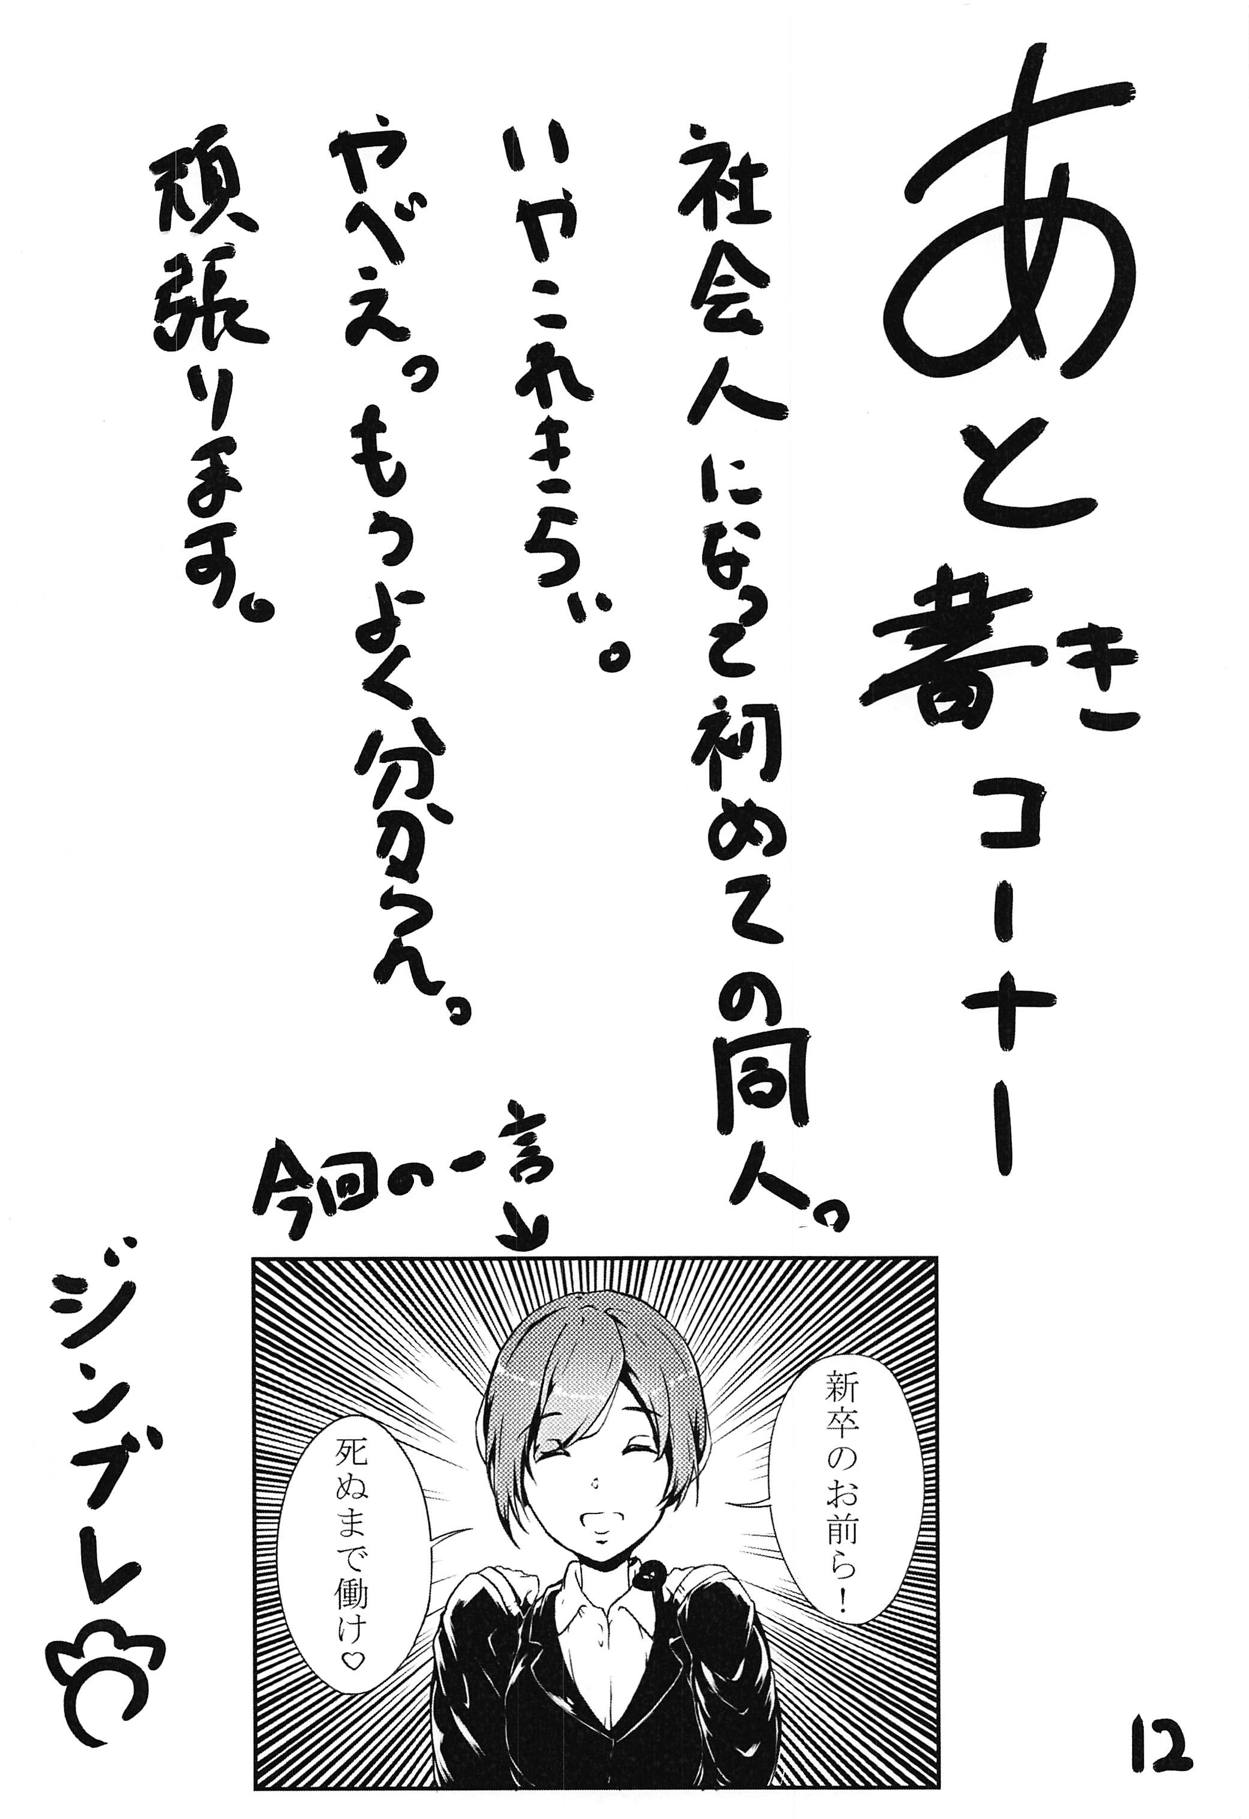 あと書きコーナー
社会人になって初めての同人。
いやこれきちぃ。
やべえ。もうよく分からん。
頑張ります。
今回の一言
新卒のお前ら！
死ぬまで働け♡
ジンブレ
12